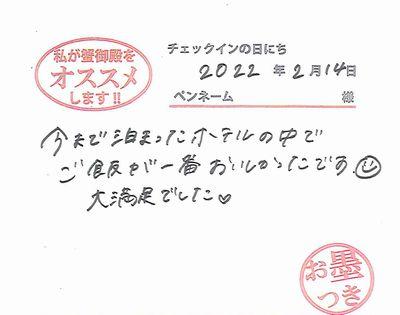 私が蟹御殿を
オススメ
します!!
チェックインの日にち
2022 年 2月 14日
ペンネーム 様
今まで泊まったホテルの中で
ご飯が一番おいしかったです。
大満足でした♡
お墨
つき